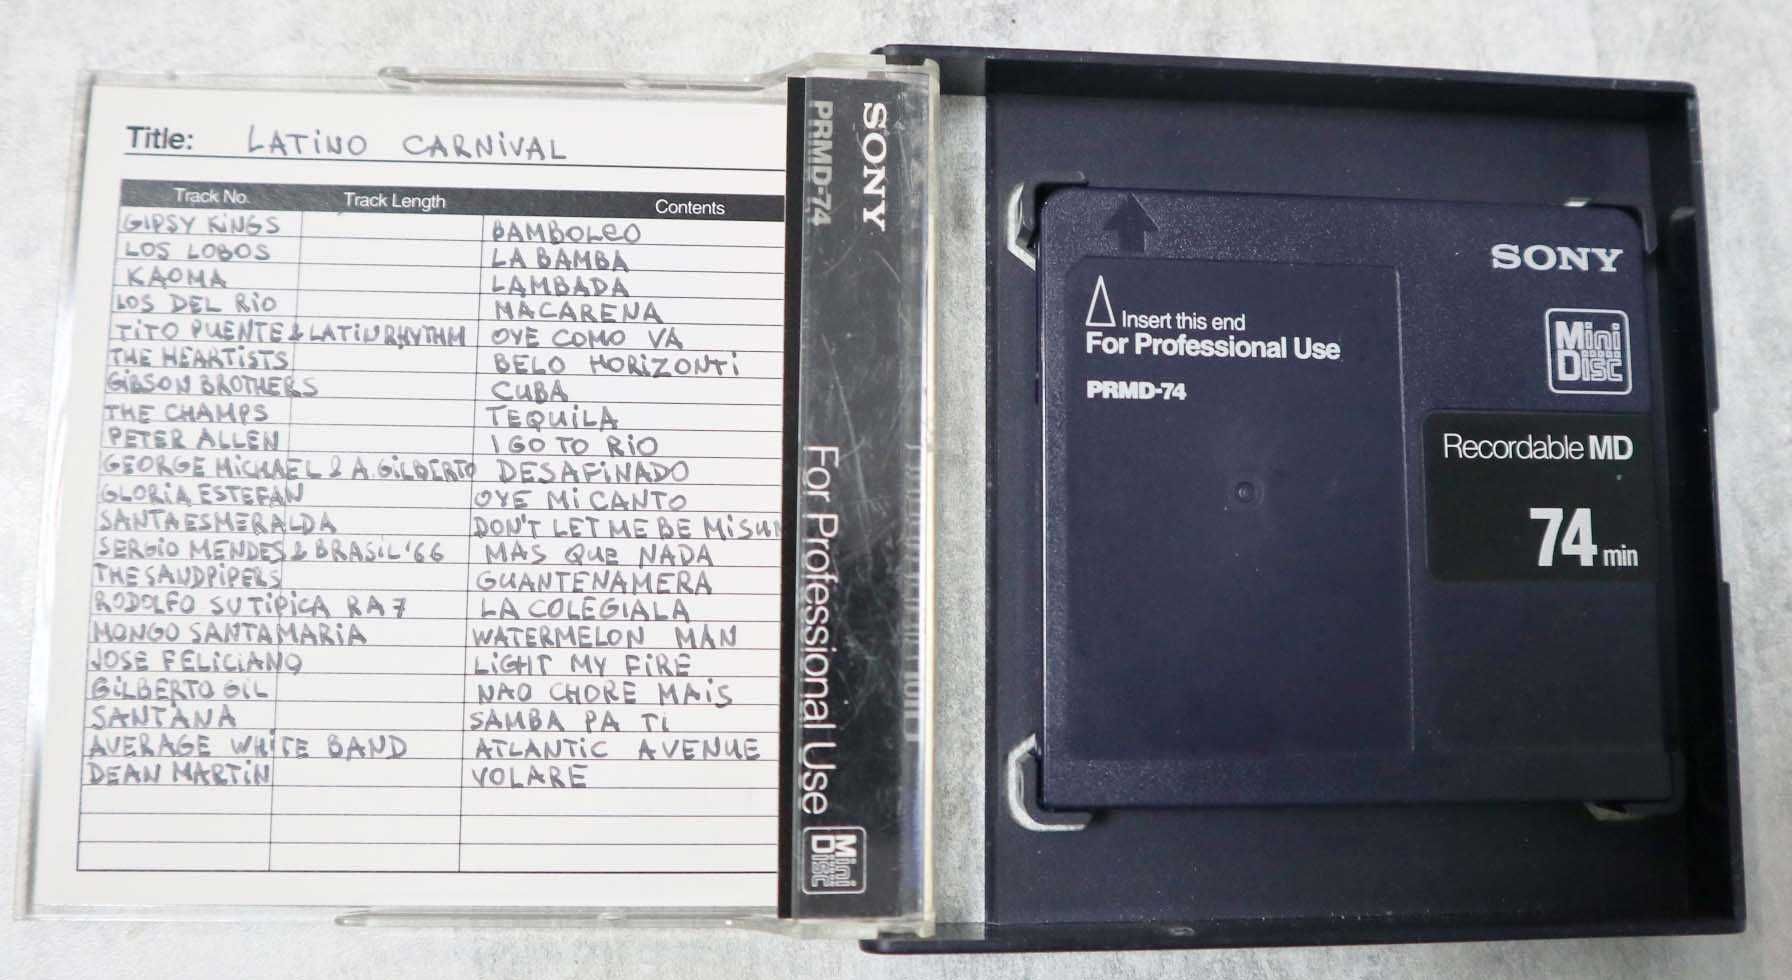 Title: LATINO CARNIVAL
Track No. Track Length Contents
GIPSY KINGS BAMBOLEO
LOS LOBOS LA BAMBA
KAOMA LAMBADA
LOS DEL RIO MACARENA
TITO PUENTE & LATIN RHYTHM OYE COMO VA
THE HEARTISTS BELO HORIZONTI
GIBSON BROTHERS CUBA
THE CHAMPS TEQUILA
PETER ALLEN I GO TO RIO
GEORGE MICHAEL & A. GILBERTO DESAFINADO
GLORIA ESTEFAN OYE MI CANTO
SANTA ESMERALDA DON'T LET ME BE MISUN
SERGIO MENDES & BRASIL '66 MAS QUE NADA
THE SANDPIPERS GUANTENAMERA
RODOLFO SU TIPICA RA7 LA COLEGIALA
MONGO SANTAMARIA WATERMELON MAN
JOSE FELICIANO LIGHT MY FIRE
GILBERTO GIL NAO CHORE MAIS
SANTANA SAMBA PA TI
AVERAGE WHITE BAND ATLANTIC AVENUE
DEAN MARTIN VOLARE
SONY
PRMD-74
For Professional Use
Mini
Disc
SONY
Mini
Disc
Insert this end
For Professional Use
PRMD-74
Recordable MD
74 min